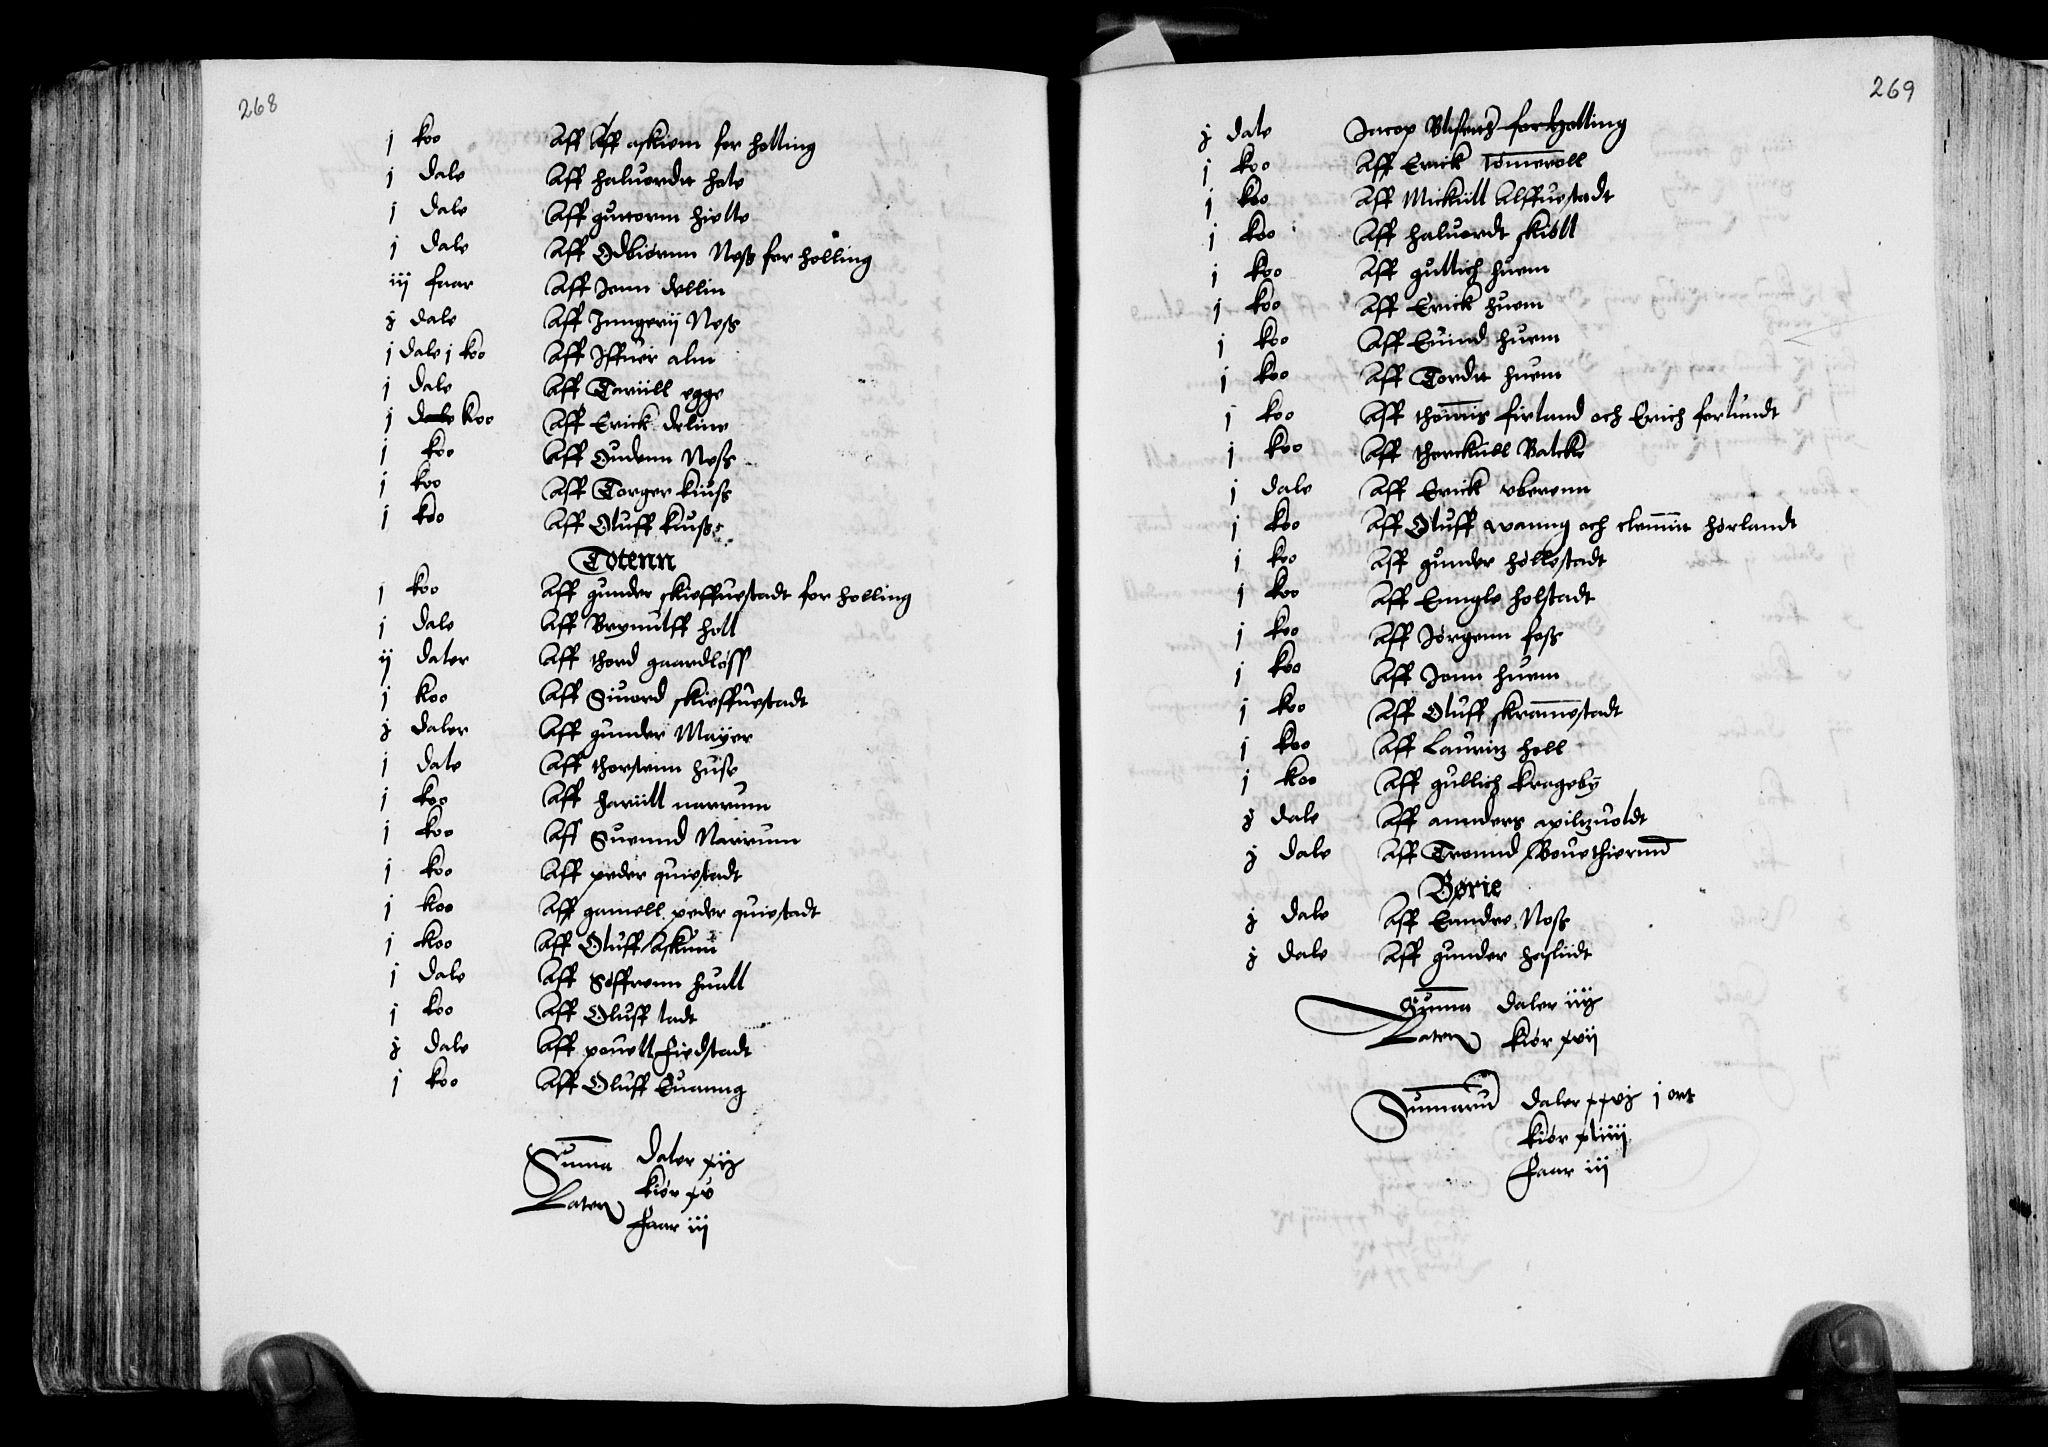 268
j koo Aff Aff askiem for holling
j dale Aff haluordtt hole
j dale Aff guttorm hielle
j dale Aff Odbiørnn Ness for holling
iij faar Aff Jonn dellin
j dale Aff Jnngerij Ness
j dale j koo Aff Jffuer alm
j dale Aff Tariill egge
j dale koo Aff Erick deline
j koo Aff Oudenn Ness
j koo Aff Torger kiuss
j koo Aff Oluff kiuss
Totenn
j koo Aff gunder skieffuestadt for holling
j dale Aff Brynulff holl
ij daler Aff thord gaardløss
j koo Aff Siuord skieffuestadt
j daler Aff gunder Mayer
j dale Aff thorstenn huse
j koo Aff hariill narrum
j koo Aff Suennd Narrum
j koo Aff peder quiestadt
j koo Aff gamell peder quiestadt
j koo Aff Oluff Askum
j dale Aff Søffrenn huall
j koo Aff Oluff tadt
j dale Aff pouell fiedstadt
j koo Aff Oluff Euanng
Summa daler xij
Lateris kiør xv
faar iij
269
j dale Jacop for Holling
j koo Aff Erick Tommeroll
j koo Aff Mickiill Alffuestadt
j koo Aff haluordt skiøll
j koo Aff gullich huem
j koo Aff Erick huem
j koo Aff Euind huem
j koo Aff Tordtt huem
j koo Aff thommis firland och Erich forlundt
j koo Aff thorckiill Balcke
j dale Aff Erick oberenn
j koo Aff Oluff wanng och clemmitt horlandt
j koo Aff gunder hollestadt
j koo Aff Enngle holstadt
j koo Aff Jørgenn foss
j koo Aff Jonn huem
j koo Aff Oluff skrammestadt
j koo Aff Lauritz holl
j koo Aff gullich krageby
j dale Aff annders apilzuoldt
j dale Aff Tronnd Bouethiernnd
Børie
j dale Aff Enndre Ness
j dale Aff gunder hasliidt
Summa daler iiij
Lateris kiør xvij
Summarum daler xxvj j ort
kiør xliiij
faar iij